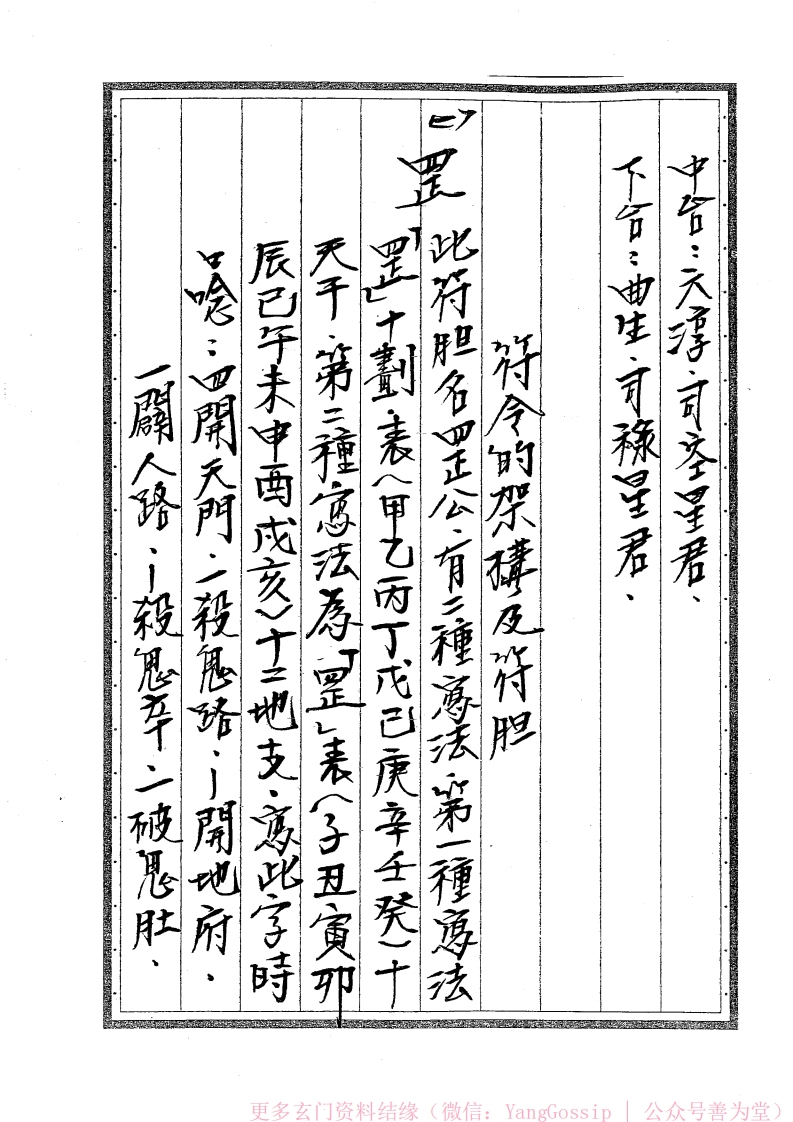 中台：天淳．司空星君．
下台：曲生．司祿星君．
符令的架構及符胆
罡 此符胆名罡公．有二種寫法．第一種寫法
「罡」十劃．表（甲乙丙丁戊己庚辛壬癸）十
天干．第二種寫法為「罡」表（子丑寅卯
辰巳午未申酉戌亥）十二地支．寫此字時
口唸：四開天門．一殺鬼路．丨開地府．
一闢人路．丨殺鬼卒．一破鬼肚．
更多玄门资料结缘（微信：YangGossip | 公众号善为堂）